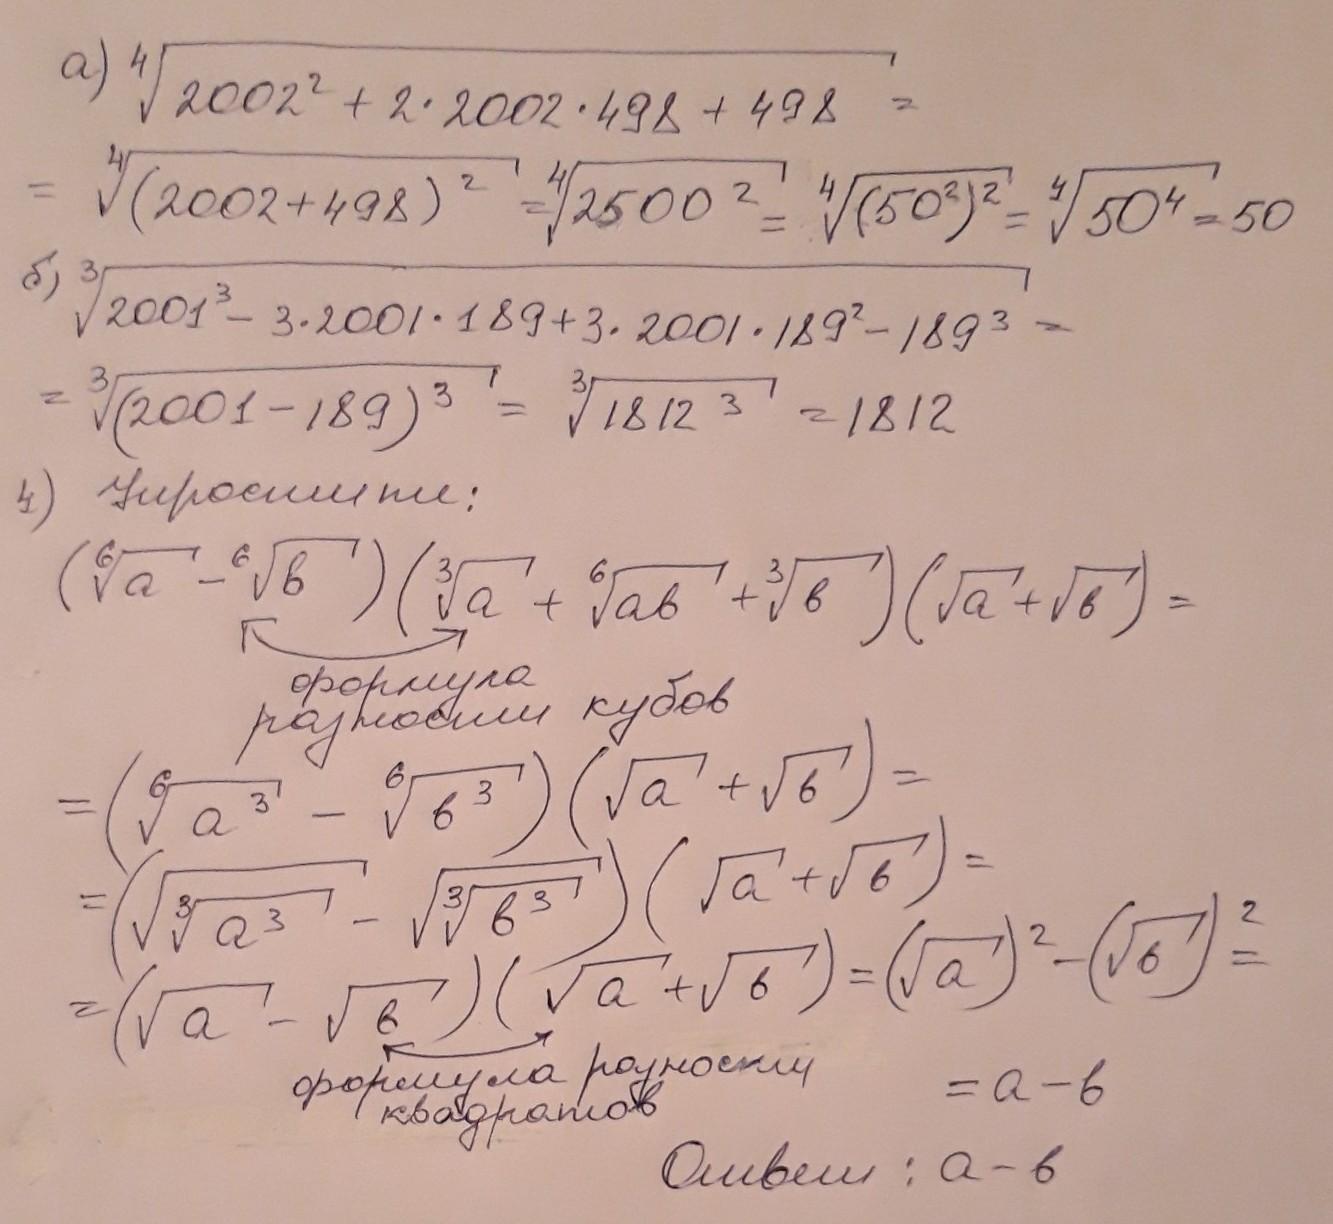 а) ⁴√(2002² + 2·2002·498 + 498) =
= ⁴√((2002+498)²) = ⁴√(2500²) = ⁴√((50²)²) = ⁴√(50⁴) = 50
б) ³√(2001³ - 3·2001·189 + 3·2001·189² - 189³) =
= ³√((2001-189)³) = ³√(1812³) = 1812
4) Упростить:
(⁶√a - ⁶√b)(³√a + ⁶√ab + ³√b)(√a + √b) =
формула
разности кубов
= (⁶√(a³) - ⁶√(b³))(√a + √b) =
= (√(³√(a³)) - √(³√(b³)))(√a + √b) =
= (√a - √b)(√a + √b) = (√a)² - (√b)² =
формула разности
квадратов
= a - b
Ответ: a - b